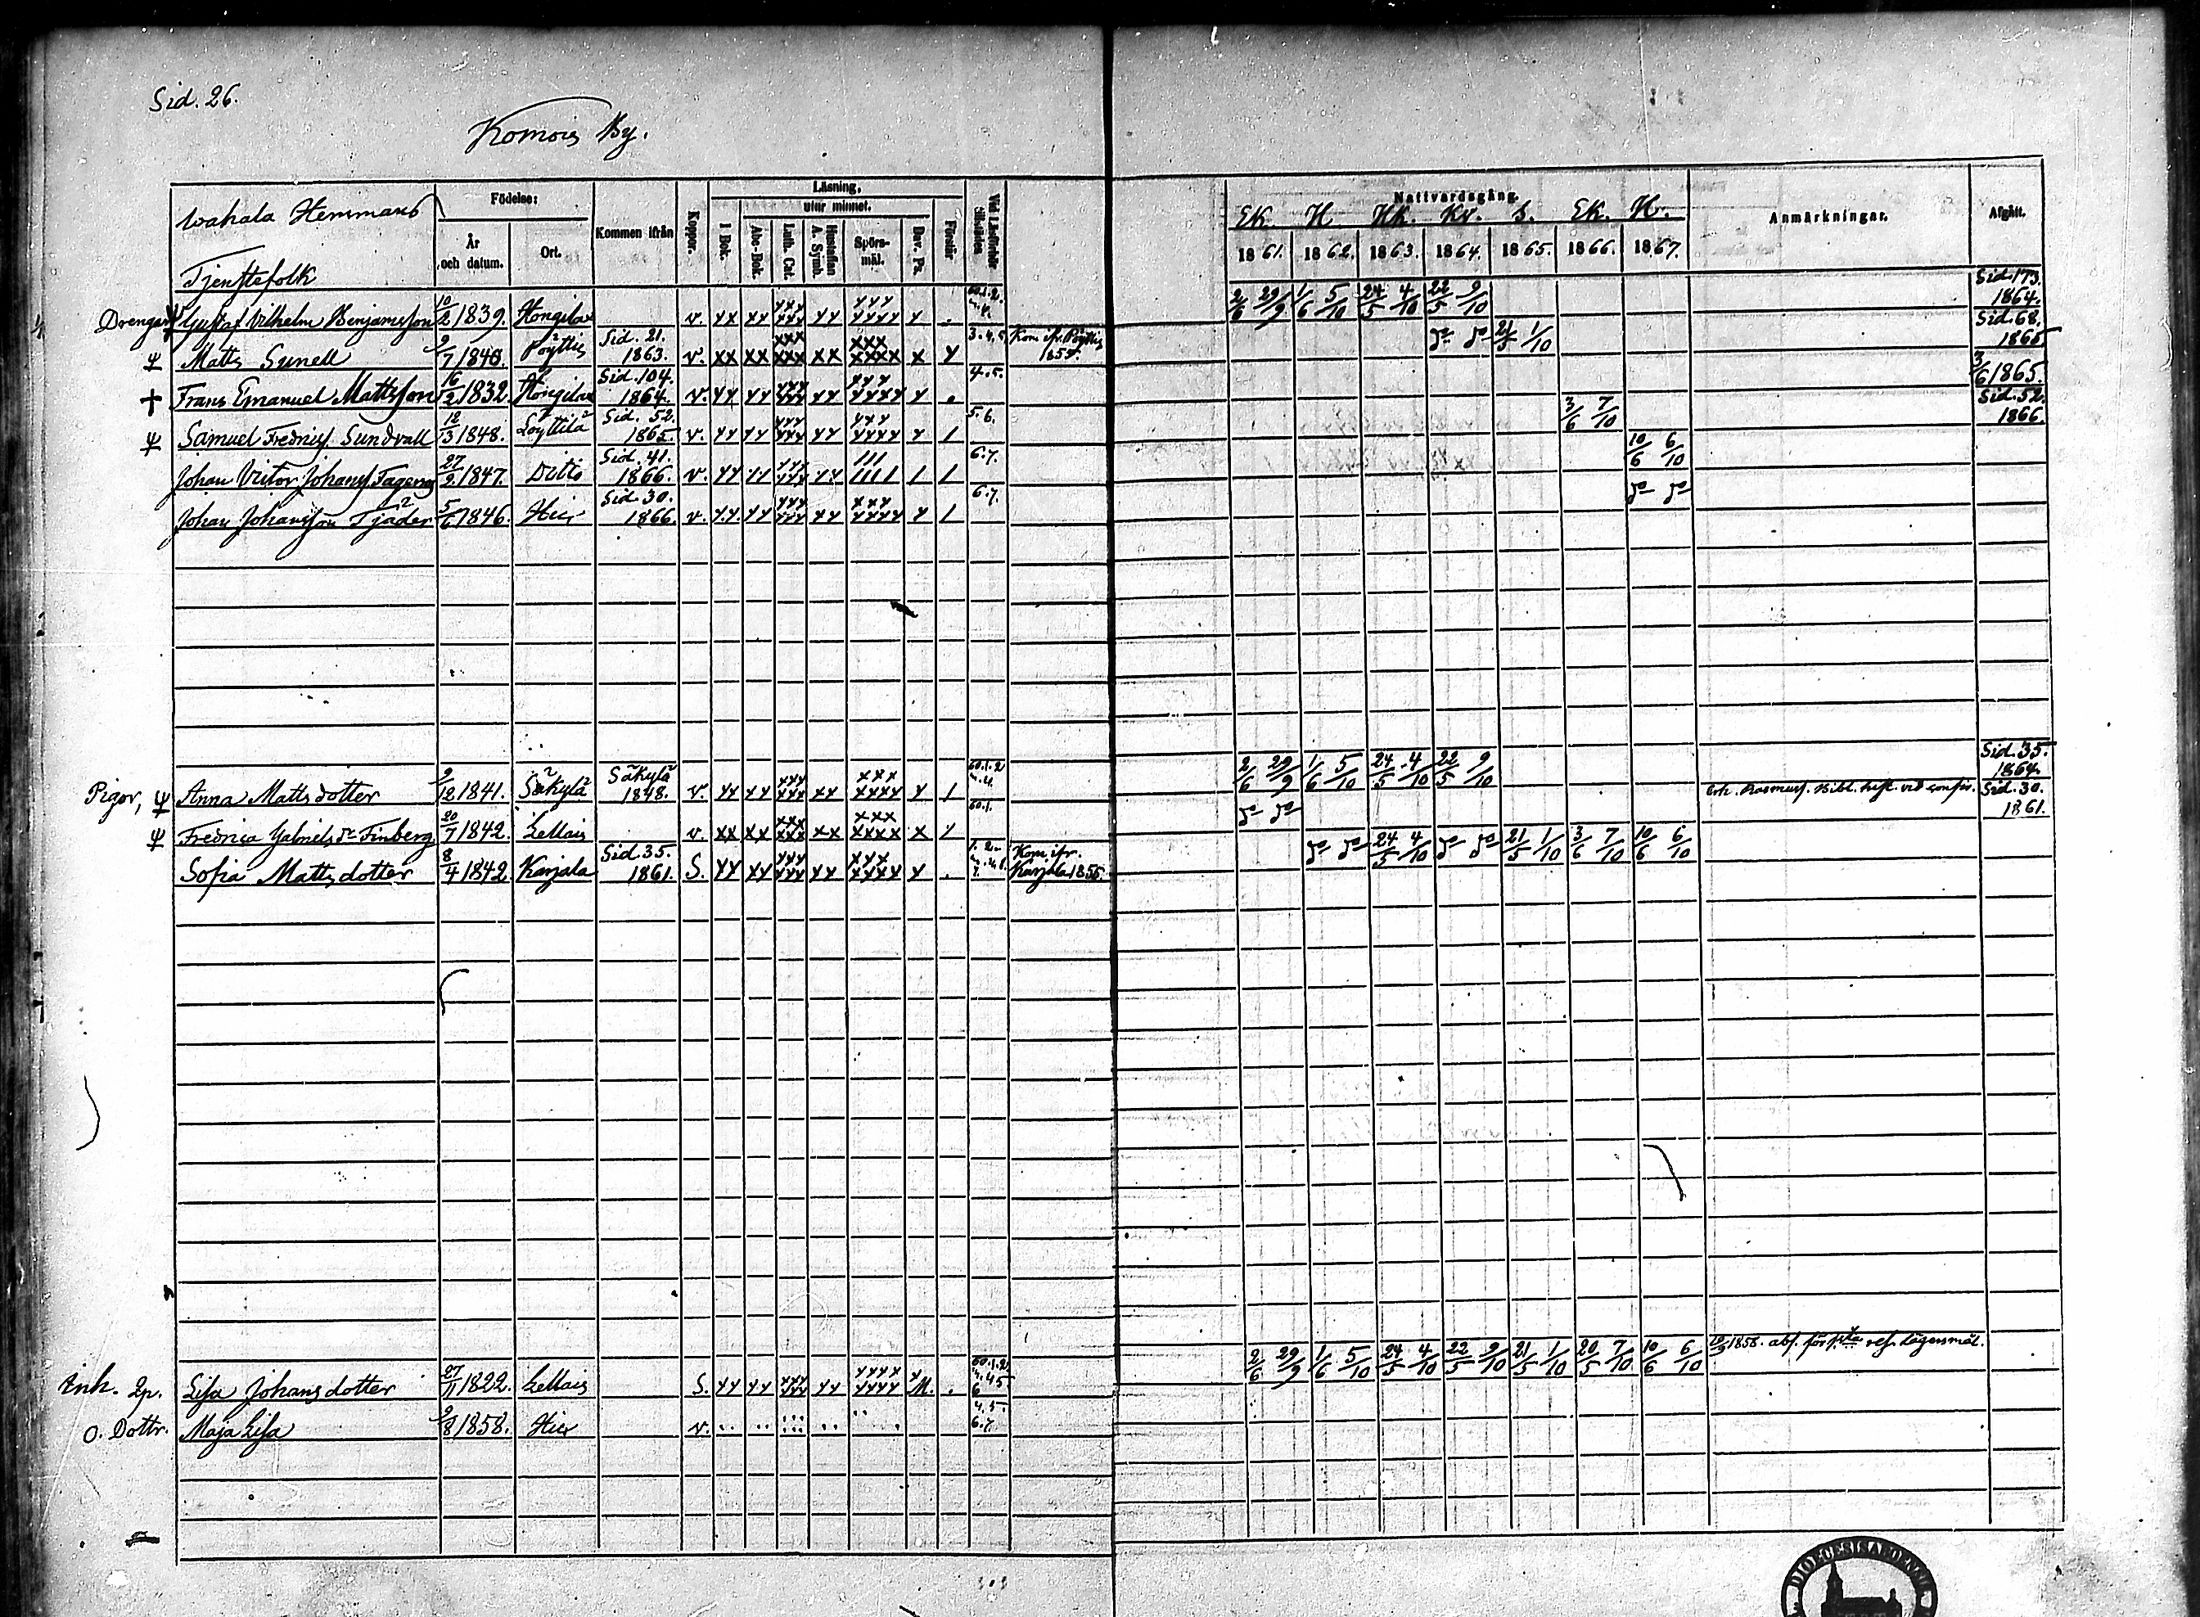 Sid. 26.
Komois By.
Wahala Hemmans
Tjenstefolk
Födelse:
År och datum.
Ort.
Kommen ifrån
Koppor.
Läsning.
utur minnet.
I Bok.
Abc-Bok.
Luth. Cat.
Hustaflan A. Symb.
Spörs-mål.
Dav. Ps.
Förstår
Nattvardsgång.
EK. H. Kk. Kv. S. EK. H.
1861. 1862. 1863. 1864. 1865. 1866. 1867.
Anmärkningar.
Afgått.
Drengar, Gustaf Vilhelm Benjamsson 10/2 1839. Hongilax v. xx xx xxx xxx xx xxx xxxx x . 60.1.2. 2/6 29/9 1/6 5/10 24/5 4/10 22/5 9/10 Sid. 173. 1864.
Matts Sunell 9/7 1840. Pöyttis Sid. 21. 1863. v. xx xx xxx xxx xx xxx xxxx x x 3.4.5. Kom ifr. Pöyttis do do 21/5 1/10 Sid. 68. 1865
† Frans Emanuel Mattsson 16/2 1832. Hongilax Sid. 104. 1864. v. xx xx xxx xxx xx xxx xxxx x . 4.5. 3/6 1865.
Samuel Fredricss. Sundvall 12/3 1848. Löyttilä Sid. 52. 1865. v. xx xx xxx xxx xx xxx xxxx x / 5.6. 3/6 7/10 Sid. 52. 1866.
Johan Victor Johanss. Fagerns 27/2 1847. Ditto Sid. 41. 1866. v. xx // xxx xxx xx /// //// / / 6.7. 10/6 6/10
Johan Johansson Tjäder 5/6 1846. Hier Sid. 30. 1866. v. xx xx xxx xxx xx xxx xxxx x / 6.7. do do
Pigor, Anna Mattsdotter 9/12 1841. Säkylä Säkylä 1848. v. xx xx xxx xxx xx xxx xxxx x / 60.1.2 2/6 29/9 1/6 5/10 24/5 4/10 22/5 9/10 Sid. 35. 1864.
Fredrica Gabriels dr Finberg 20/7 1842. Lellais v. xx xx xxx xxx xx xxx xxxx x x 60.1. do do Sid. 30. 1861.
Sofia Mattsdotter 8/4 1842 Karjala Sid. 35. 1861. S. xx xx xxx xxx xx xxx xxxx x . Kom. ifr. Karjala 1855. do do 24/5 4/10 do do 21/5 1/10 3/6 7/10 10/6 6/10
Enk. Lisa Johansdotter 27/11 1822. Lellais S. xx xx xxx xxx xx xxxx xxxx M. . 60.1.2 2/6 29/9 1/6 5/10 24/5 4/10 22/5 9/10 21/5 1/10 20/5 7/10 10/6 6/10 1858. abs. för lägersmål.
o. Dottr. Maja Lisa 9/8 1858. Hier v. 4.5. 6.7.